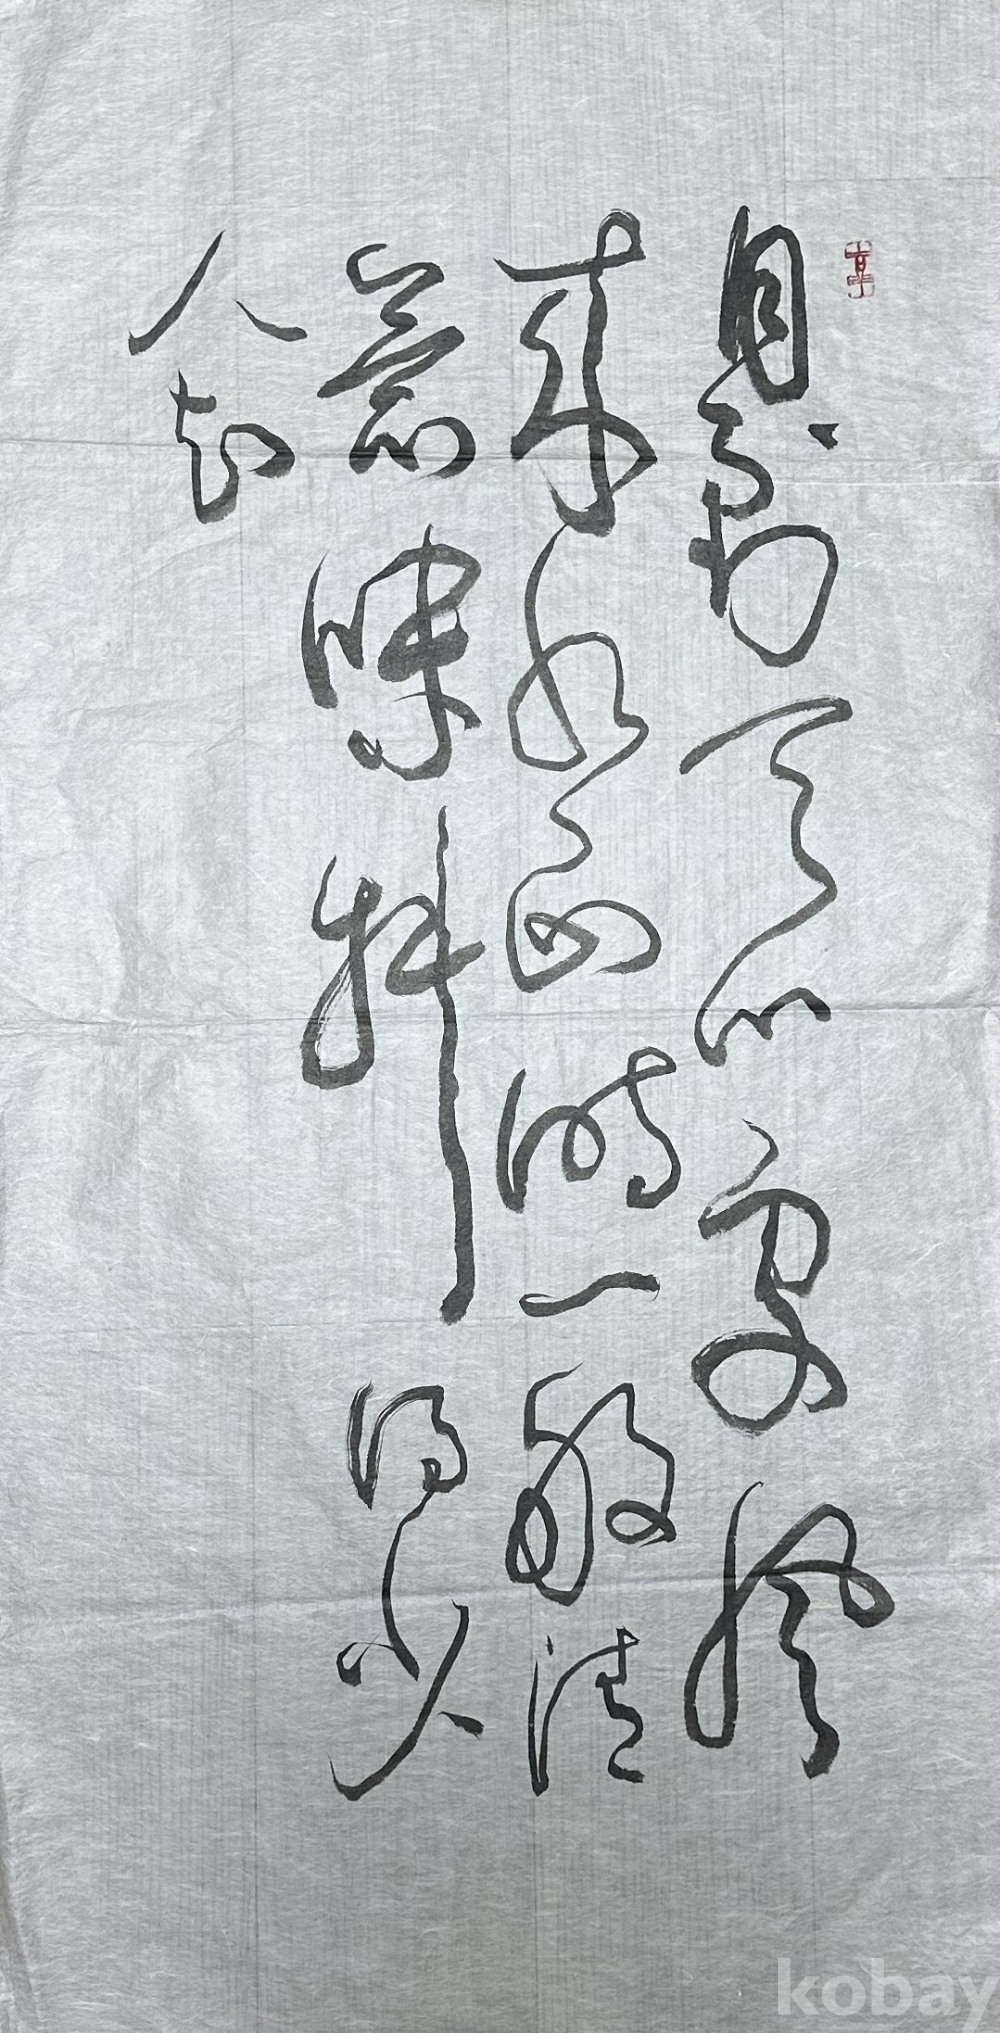 月到天心處風
來水面時一般清
意味料得少
人知
kobay